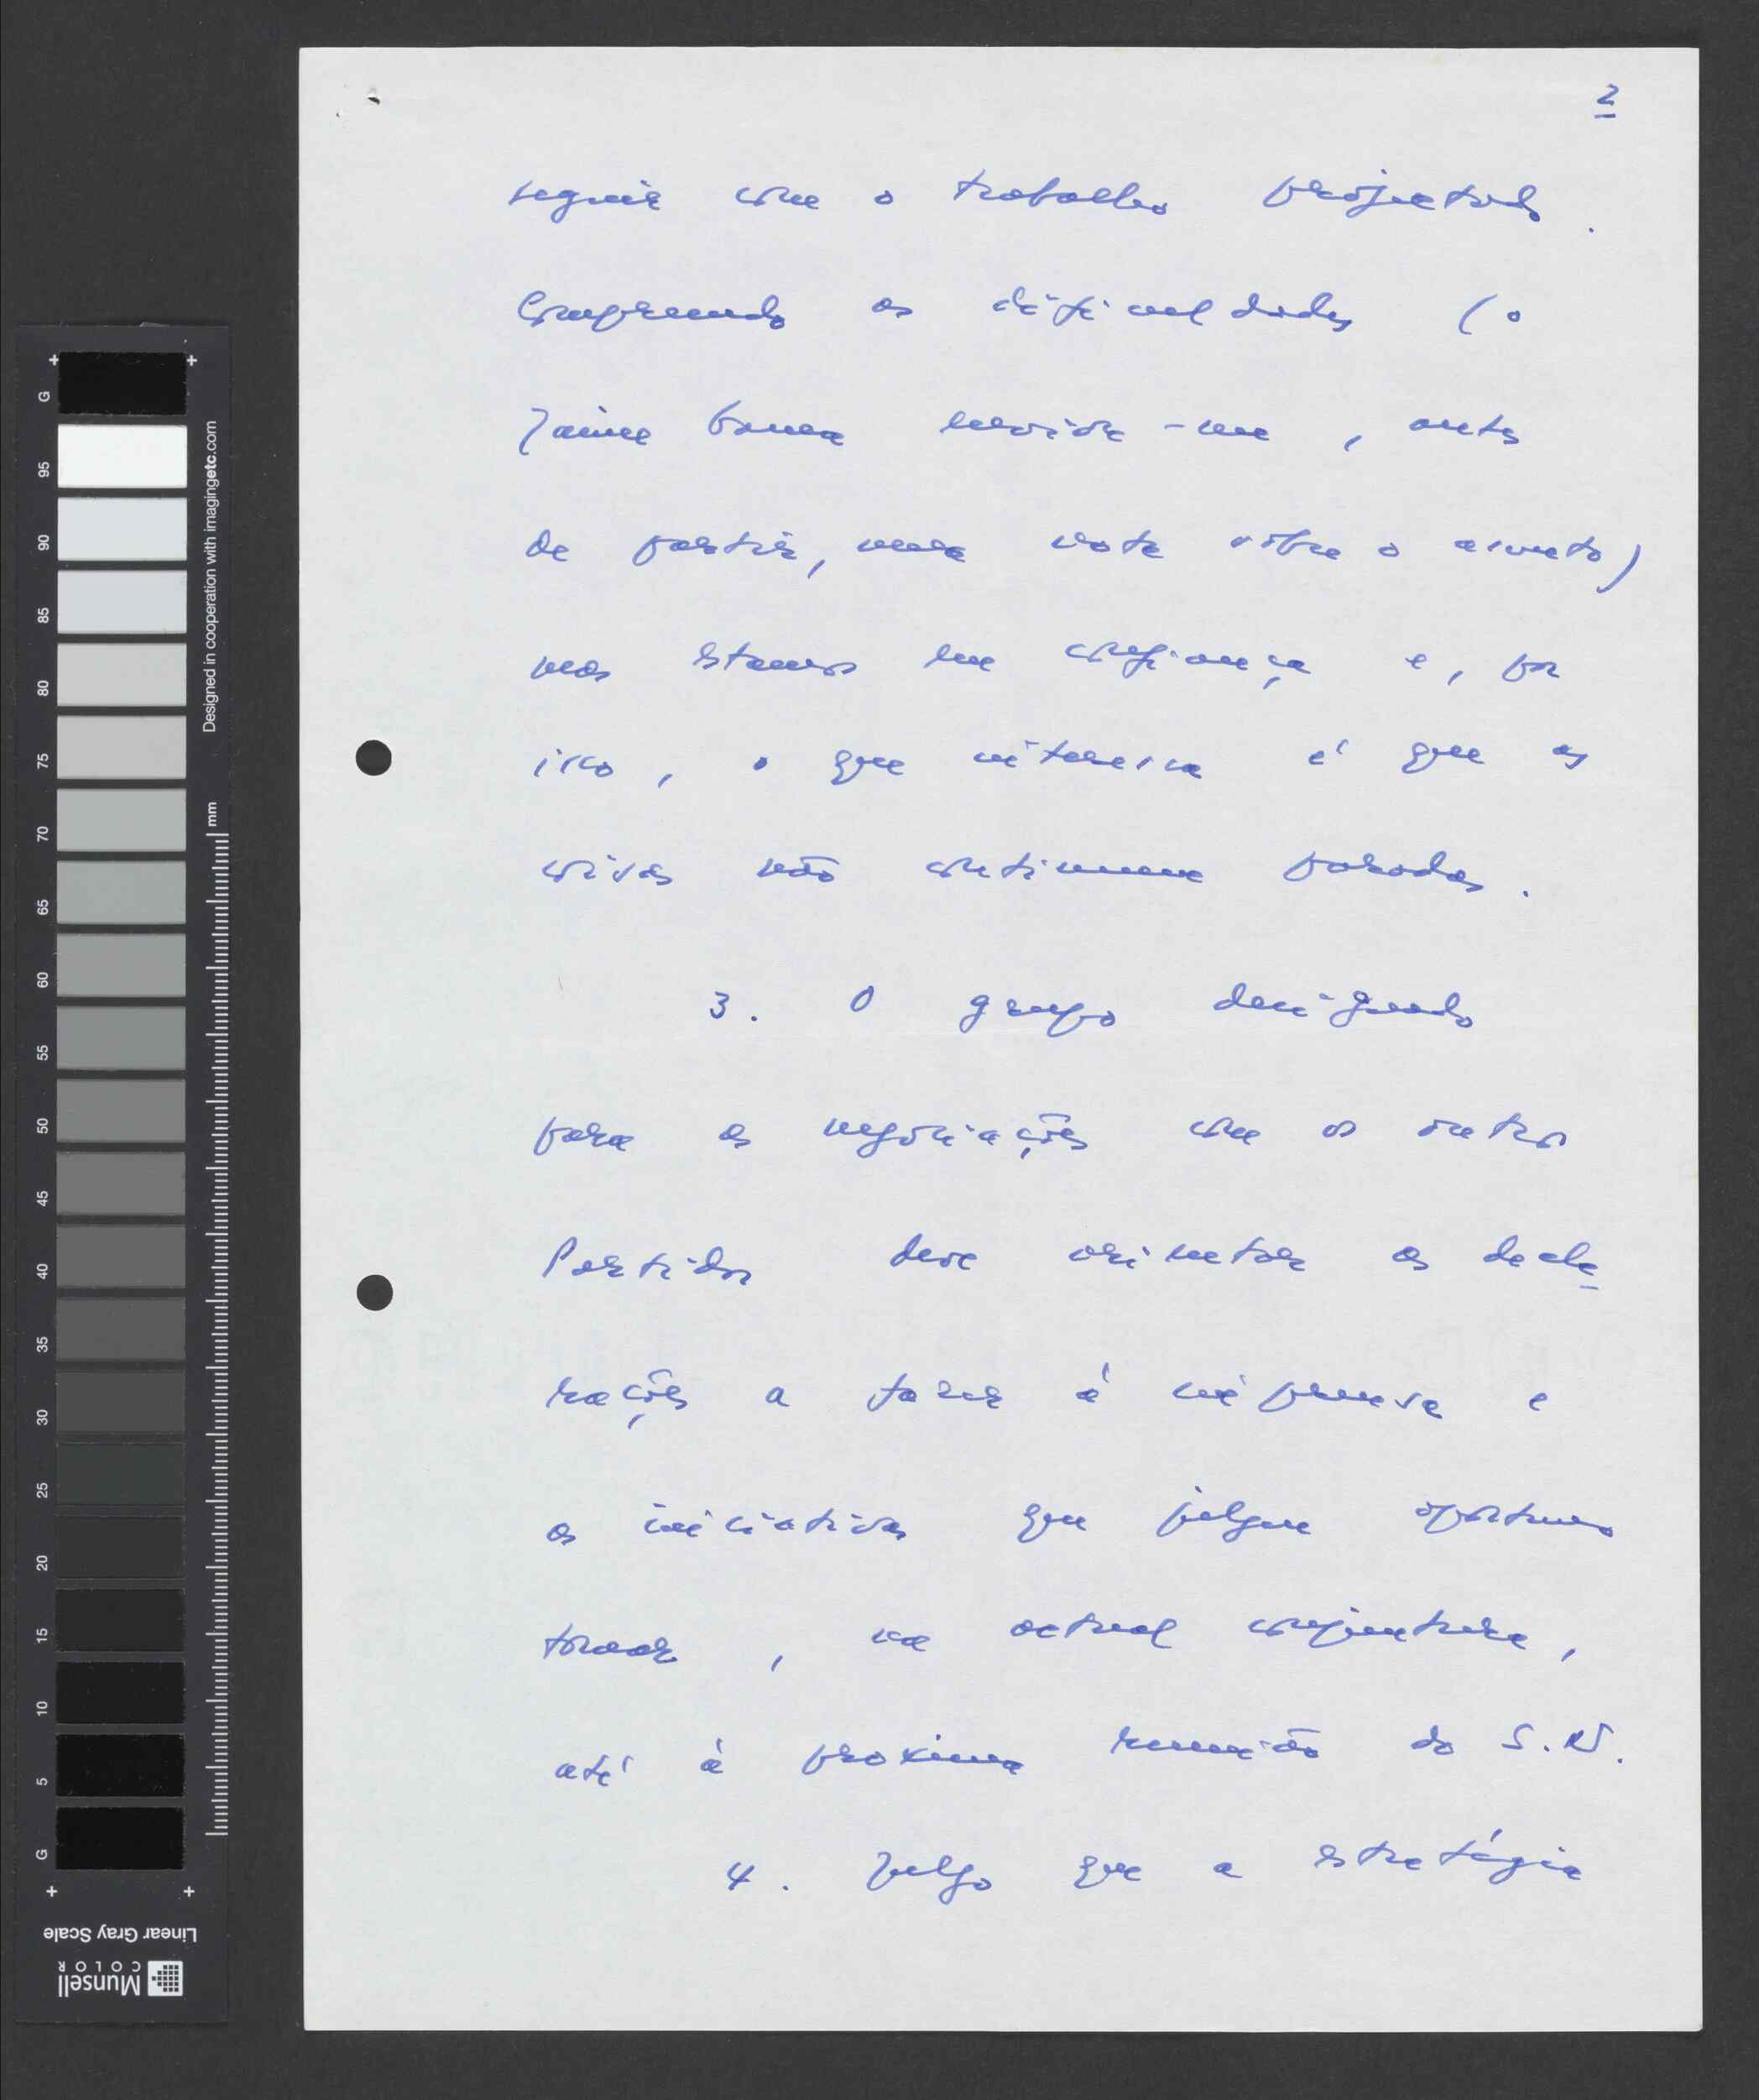 2
seguir com o trabalho projectado.
Compreendo as dificuldades (o
Jaime Gama enviou-me, antes
de partir, uma nota sôbre o assunto)
mas estamos em confiança e, por
isso, o que interessa é que as
coisas não continuem paradas.
3. O grupo designado
para as negociações com os outros
Partidos deve orientar as decla
rações a fazer á imprensa e
as iniciativas que julgue oportuno
tomar, na actual conjuntura,
até à proxima reunião do S.N.
4. Julgo que a estratégia
G
95
90
85
80
75
70
65
60
55
50
45
40
35
30
25
20
15
10
5
G
mm
Designed in cooperation with imagingetc.com
Linear Gray Scale
Munsell
COLOR